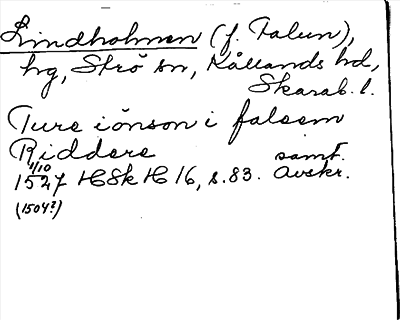 Lindholmen (f. Falun),
hg, Strö sn, Kållands hd,
Skarab. l.
Ture iönson i falsem
Riddere
1/10 samt.
1527 HSH H 16, s. 83. Avskr.
(1504?)